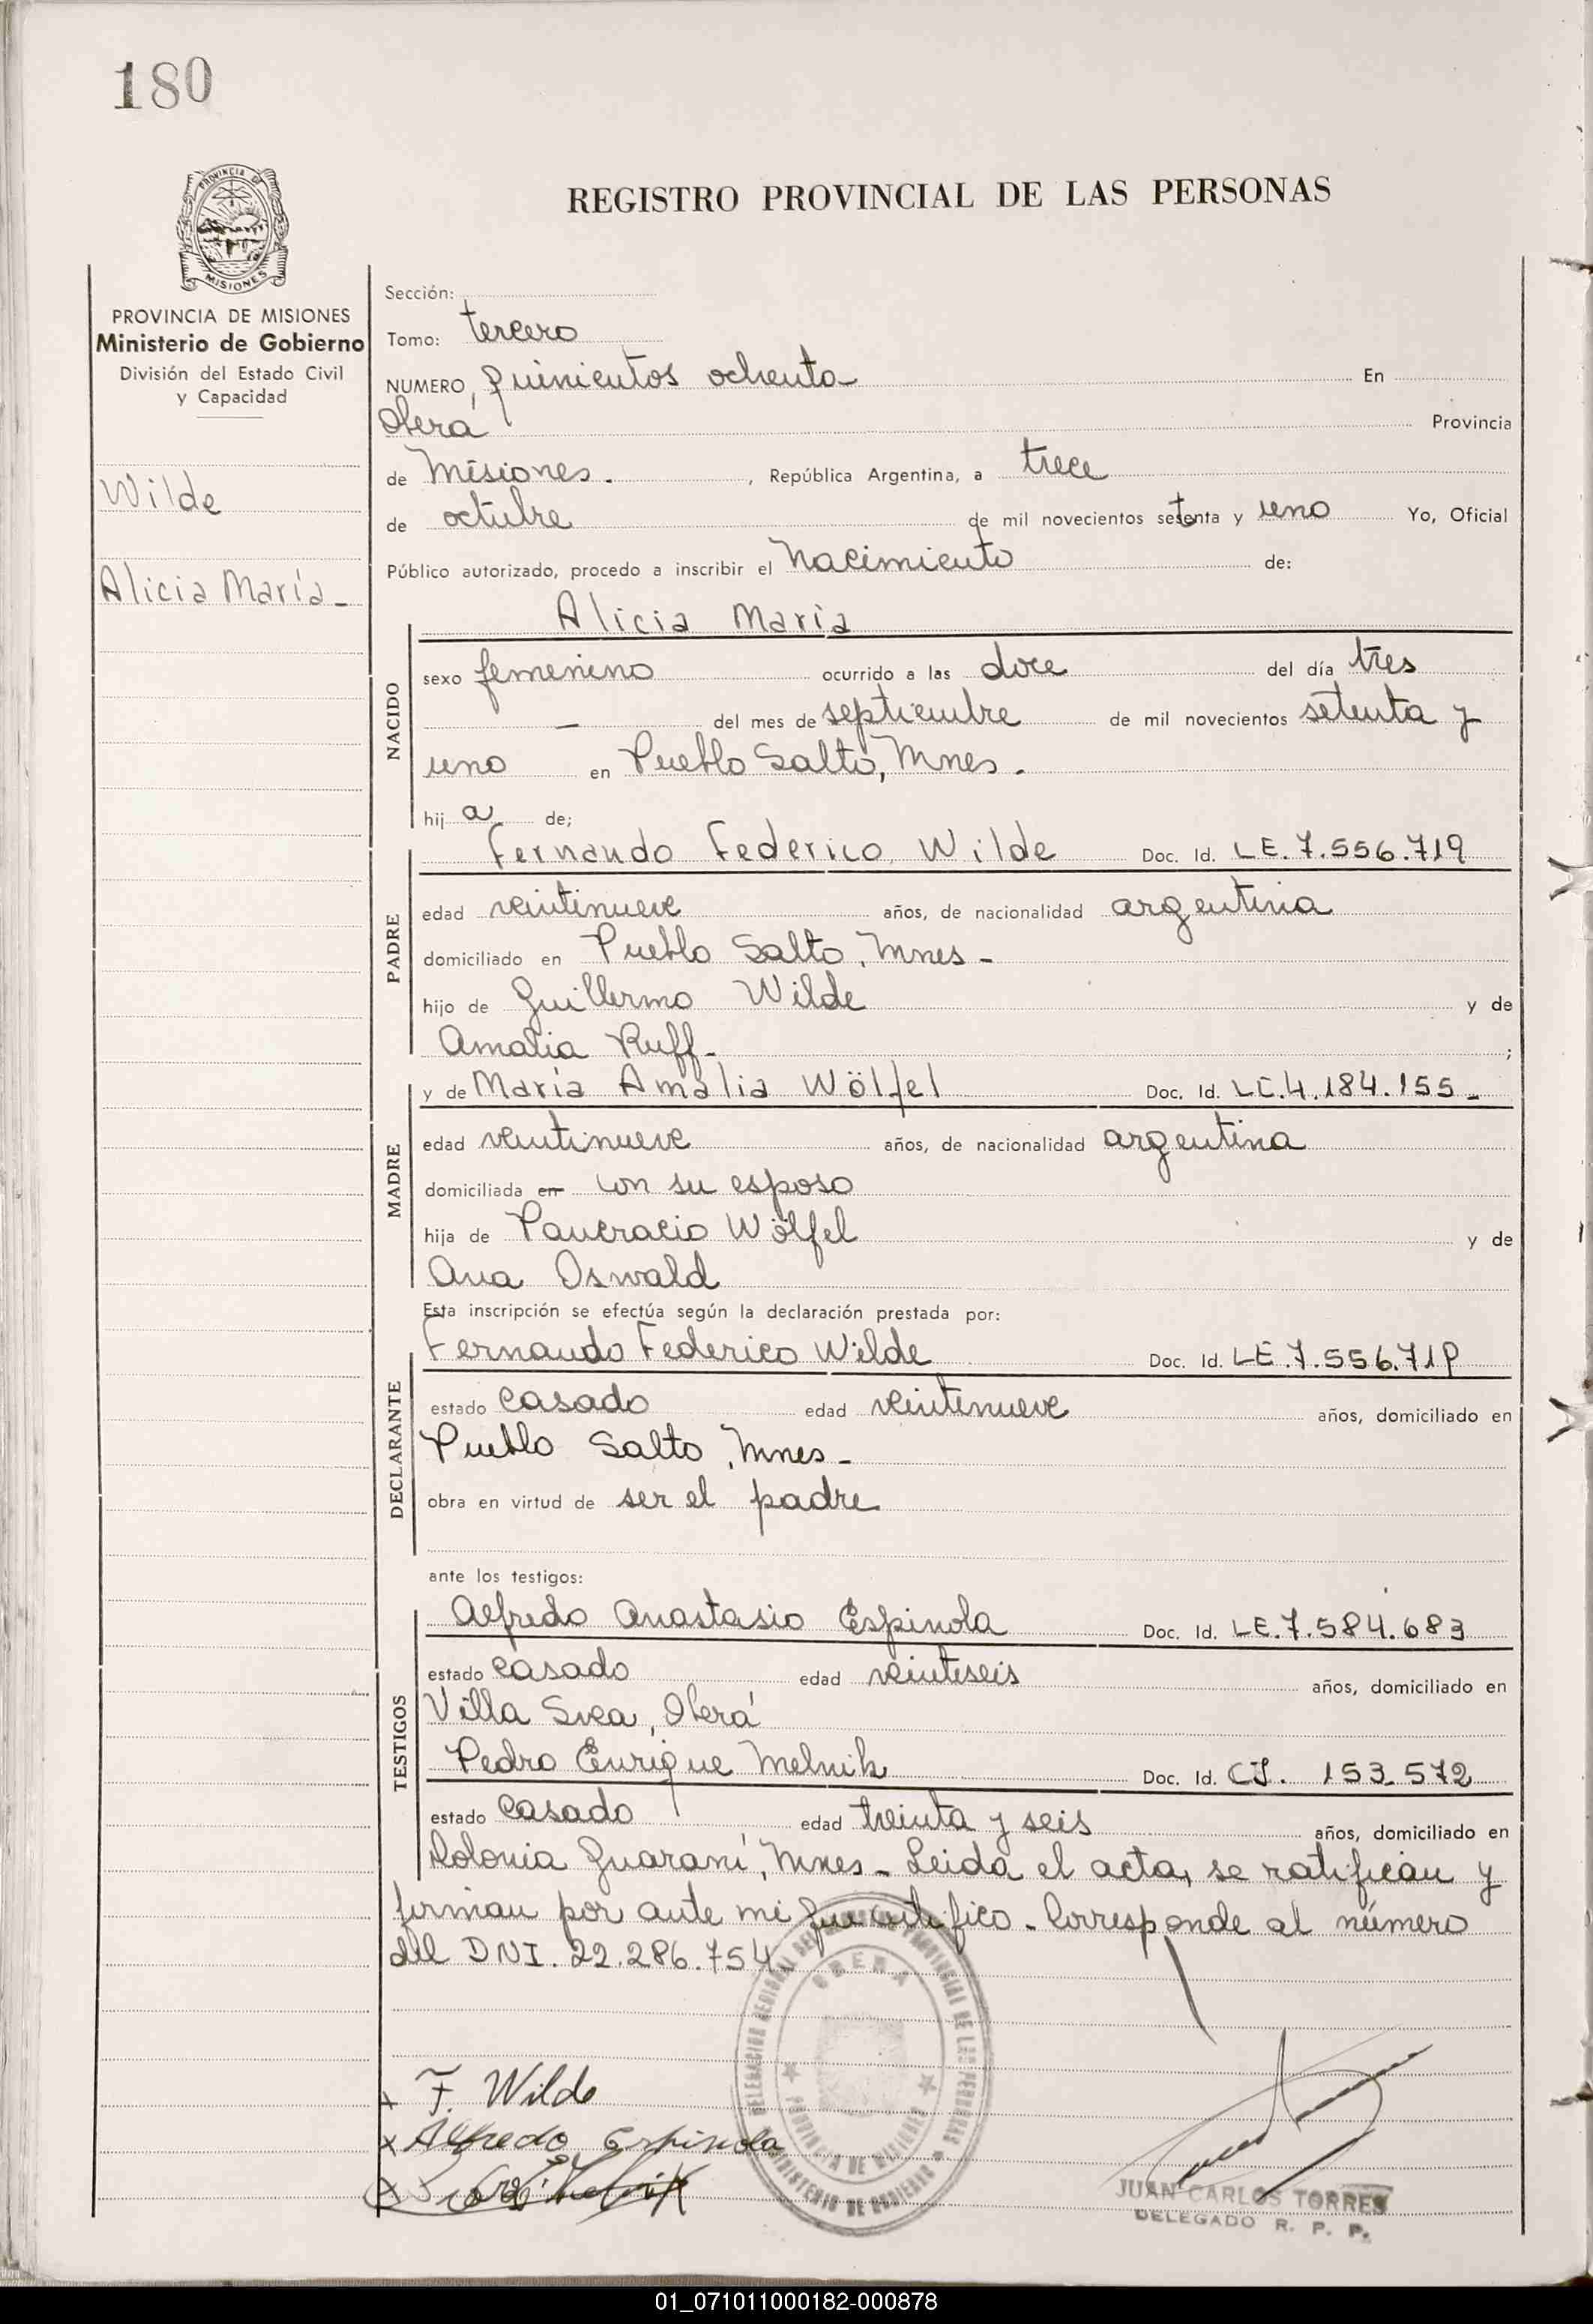 180
PROVINCIA DE
MISIONES
REGISTRO PROVINCIAL DE LAS PERSONAS
PROVINCIA DE MISIONES
Ministerio de Gobierno
División del Estado Civil
y Capacidad
Wilde
Alicia María_
Sección:
Tomo: tercero
NUMERO, quinientos ochenta En
Oberá Provincia
de Misiones. , República Argentina, a trece
de octubre de mil novecientos setenta y uno Yo, Oficial
Público autorizado, procedo a inscribir el Nacimiento de:
NACIDO
Alicia María
sexo femenino ocurrido a las doce del día tres
— del mes de septiembre de mil novecientos setenta y
uno en Pueblo Salto, Mnes.
hij a de;
PADRE
Fernando Federico Wilde Doc. Id. LE. 7.556.719
edad veintinueve años, de nacionalidad argentina
domiciliado en Pueblo Salto, Mnes-
hijo de Guillermo Wilde y de
Amalia Ruff- ;
MADRE
y de María Amalia Wölfel Doc. Id. LC.4.184.155-
edad veintinueve años, de nacionalidad argentina
domiciliada en con su esposo
hija de Pancracio Wölfel y de
Ana Oswald
Esta inscripción se efectúa según la declaración prestada por:
DECLARANTE
Fernando Federico Wilde Doc. Id. LE.7.556.719
estado casado edad veintinueve años, domiciliado en
Pueblo Salto, Mnes-
obra en virtud de ser el padre
ante los testigos:
TESTIGOS
Alfredo Anastasio Espinola Doc. Id. LE.7.584.683
estado casado edad veintiseis años, domiciliado en
Villa Svea, Oberá
Pedro Enrique Melnik Doc. Id. CI. 153.572
estado casado edad treinta y seis años, domiciliado en
Colonia Guaraní, Mnes- Leida el acta, se ratifican y
firman por ante mi que certifico- Corresponde al número
del DNI. 22.286.754
DELEGACION REGIONAL DEL REGISTRO PROVINCIAL DE LAS PERSONAS
OBERA
PROVINCIA DE MISIONES
MINISTERIO DE GOBIERNO
x F. Wilde
x Alfredo Espinola
x
JUAN CARLOS TORRES
DELEGADO R. P. P.
01_071011000182-000878